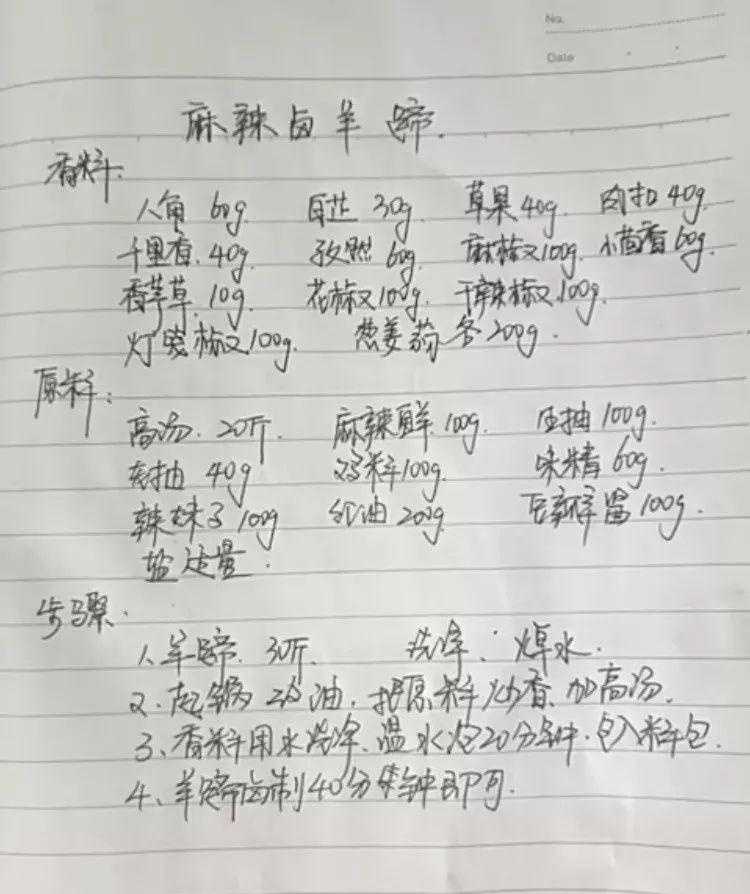 No.
Date
麻辣卤羊蹄.
香料:
八角 60g 白芷 30g 草果 40g 肉扣 40g
千里香. 40g 孜然 60g 麻椒 100g. 小茴香 60g.
香茅草. 10g. 花椒 100g. 干辣椒 100g.
灯笼椒 100g. 葱姜蒜各200g.
原料:
高汤. 20斤. 麻辣鲜. 100g. 生抽 100g.
老抽 40g 鸡粉 100g. 味精 60g.
辣妹子 100g 红油 200g 豆瓣酱 100g.
盐适量.
步骤.
1、羊蹄. 30斤. 洗净. 焯水.
2、起锅 油. 把原料炒香. 加高汤.
3、香料用水洗净、温水泡20分钟. 包入料包.
4、羊蹄卤制40分钟即可.